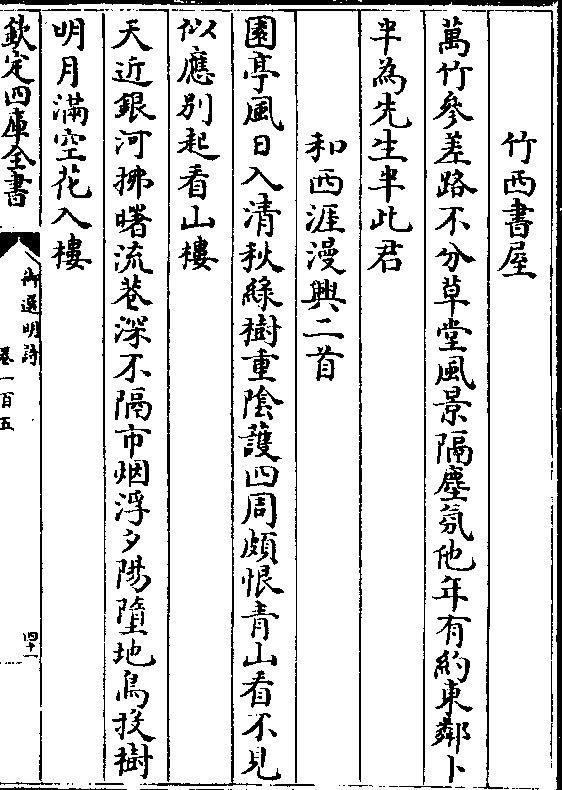 竹西書屋
萬竹參差路不分草堂風景隔塵氛他年有約東鄰卜
半為先生半此君
和西涯漫興二首
園亭風日入清秋綠樹重陰護四周頗恨青山看不見
似應別起看山樓
天近銀河拂曙流巷深不隔市烟浮夕陽墮地鳥投樹
明月滿空花入樓
欽定四庫全書
御選明詩
卷一百五
四十一